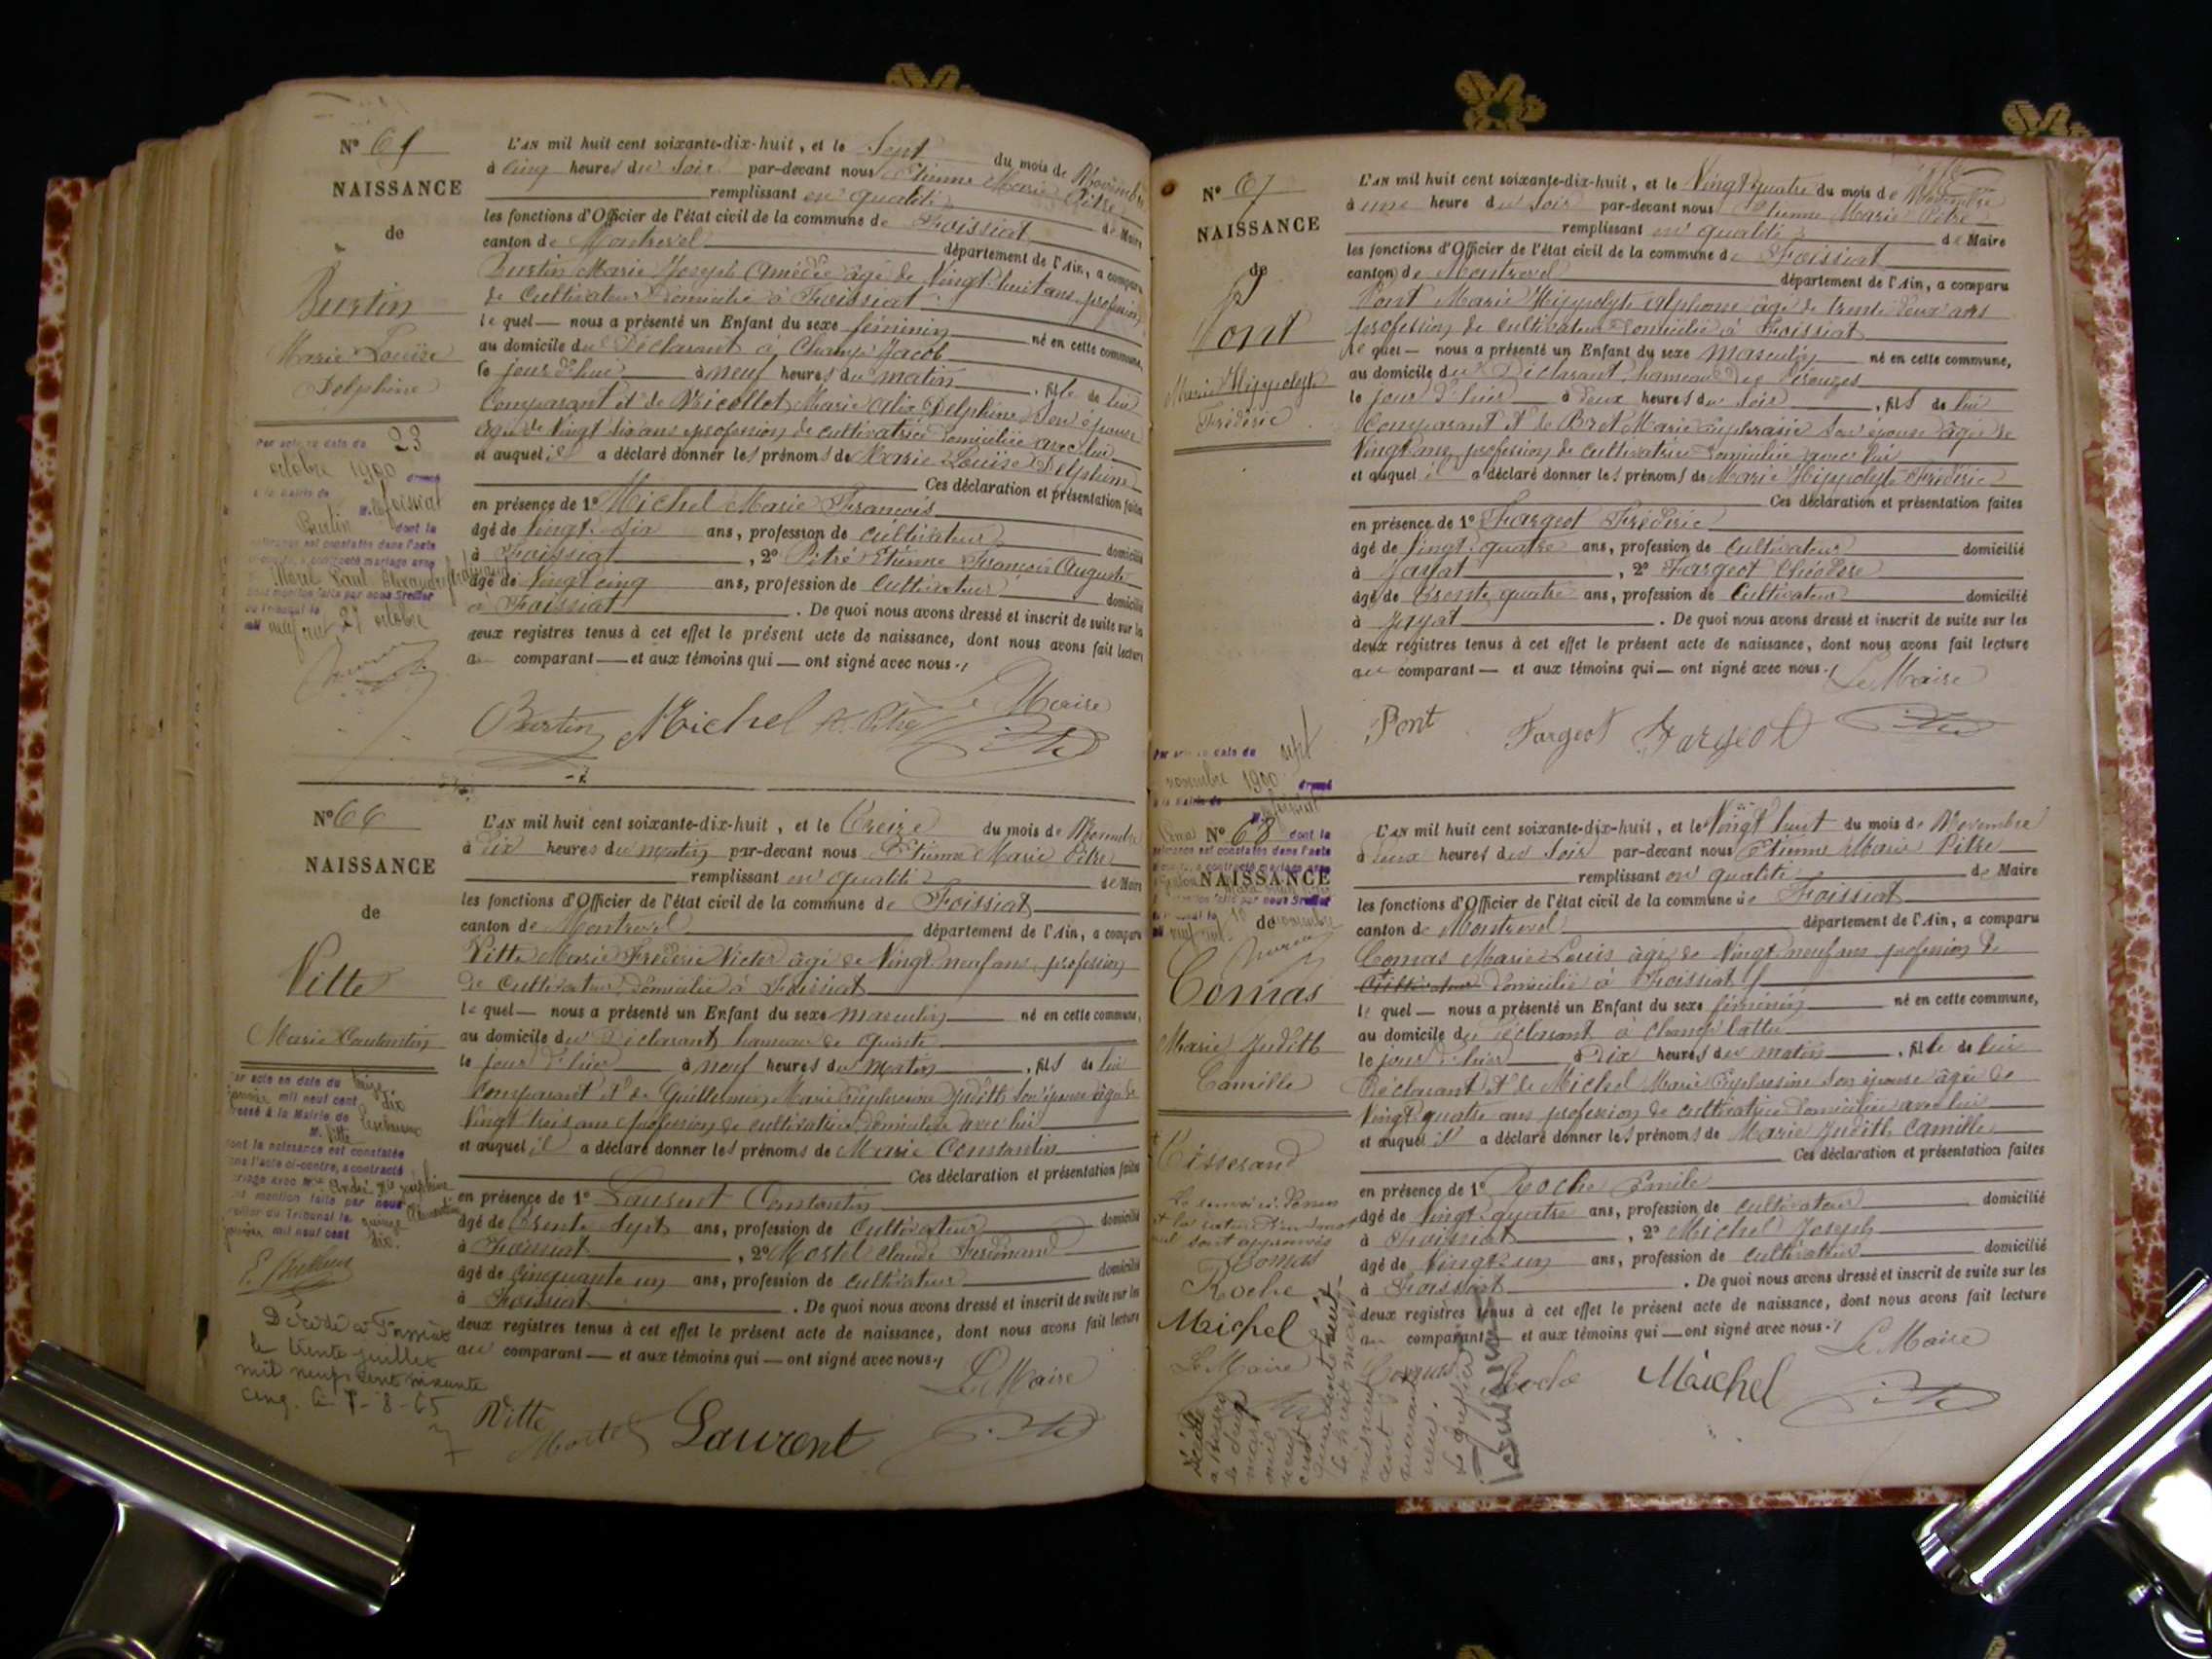 N° 65
NAISSANCE
de
Burtin
Marie Louise
Delphine
Par acte en date du 23
octobre 1900 dressé
à la Mairie de Foissiat
M. Burtin dont la
naissance est constatée dans l'acte
a contracté mariage avec
Morel Paul Alexandre
mention faite par nous Greffier
du Tribunal le
mil neuf cent 27 octobre
L'AN mil huit cent soixante-dix-huit, et le Sept du mois de Novembre
à cinq heures du soir par-devant nous Etienne Marie Pitre
remplissant en qualité de Maire
les fonctions d'Officier de l'état civil de la commune de Foissiat
canton de Montrevel département de l'Ain, a comparu
Burtin Marie Joseph Amédée âgé de Vingt huit ans profession
de Cultivateur domicilié à Foissiat
le quel — nous a présenté un Enfant du sexe féminin né en cette commune,
au domicile du Déclarant à Champ Jacob
le jour d'hui à neuf heures du matin, fille de lui
Comparant et de Nicollet Marie Alix Delphine son épouse
âgée de Vingt six ans profession de cultivatrice domiciliée avec lui
et auquel il a déclaré donner les prénoms de Marie Louise Delphine
Ces déclaration et présentation faites
en présence de 1° Michel Marie François
âgé de Vingt six ans, profession de cultivateur domicilié
à Foissiat, 2° Pitre Etienne François Auguste
âgé de Vingt cinq ans, profession de Cultivateur domicilié
à Foissiat. De quoi nous avons dressé et inscrit de suite sur les
deux registres tenus à cet effet le présent acte de naissance, dont nous avons fait lecture
au comparant — et aux témoins qui — ont signé avec nous.
Le Maire
Burtin Michel A. Pitre
N° 66
NAISSANCE
de
Vitte
Marie Constantin
Par acte en date du treize
janvier mil neuf cent dix
dressé à la Mairie de
M. Vitte
dont la naissance est constatée
dans l'acte ci-contre, a contracté
mariage avec Mlle André Mie Joséphine
mention faite par nous
Greffier du Tribunal le quinze
janvier mil neuf cent dix.
Décédé à Foissiat
le trente juillet
mil neuf cent soixante
cinq. le 7-8-65
L'AN mil huit cent soixante-dix-huit, et le Treize du mois de Novembre
à dix heures du matin par-devant nous Etienne Marie Pitre
remplissant en qualité de Maire
les fonctions d'Officier de l'état civil de la commune de Foissiat
canton de Montrevel département de l'Ain, a comparu
Vitte Marie Frédéric Victor âgé de Vingt neuf ans profession
de Cultivateur domicilié à Foissiat
le quel — nous a présenté un Enfant du sexe masculin né en cette commune,
au domicile du Déclarant, hameau de Quinte
le jour d'hier à neuf heures du matin, fils de lui
comparant et de Guillemin Marie Euphrosine Judith son épouse âgée de
Vingt trois ans profession de cultivatrice domiciliée avec lui
et auquel il a déclaré donner les prénoms de Marie Constantin
Ces déclaration et présentation faites
en présence de 1° Laurent Constantin
âgé de Trente sept ans, profession de Cultivateur domicilié
à Foissiat, 2° Mortel Claude Ferdinand
âgé de Cinquante un ans, profession de cultivateur domicilié
à Foissiat. De quoi nous avons dressé et inscrit de suite sur les
deux registres tenus à cet effet le présent acte de naissance, dont nous avons fait lecture
au comparant — et aux témoins qui — ont signé avec nous.
Le Maire
Vitte Mortel Laurent
N° 67
NAISSANCE
de
Pont
Marie Hippolyte
Frédéric
L'AN mil huit cent soixante-dix-huit, et le Vingt quatre du mois de Novembre
à une heure du soir par-devant nous Etienne Marie Pitre
remplissant en qualité de Maire
les fonctions d'Officier de l'état civil de la commune de Foissiat
canton de Montrevel département de l'Ain, a comparu
Pont Marie Hippolyte Alphonse âgé de trente deux ans
profession de cultivateur domicilié à Foissiat
le quel — nous a présenté un Enfant du sexe masculin né en cette commune,
au domicile du Déclarant, hameau des
le jour d'hier à deux heures du soir, fils de lui
Comparant et de Bret Marie Euphrasie son épouse âgée de
Vingt ans profession de cultivatrice domiciliée avec lui
et auquel il a déclaré donner les prénoms de Marie Hippolyte Frédéric
Ces déclaration et présentation faites
en présence de 1° Fargeot Frédéric
âgé de Vingt quatre ans, profession de Cultivateur domicilié
à Jayat, 2° Fargeot Théodore
âgé de Trente quatre ans, profession de Cultivateur domicilié
à Jayat. De quoi nous avons dressé et inscrit de suite sur les
deux registres tenus à cet effet le présent acte de naissance, dont nous avons fait lecture
au comparant — et aux témoins qui — ont signé avec nous.
Le Maire
Pont Fargeot Fargeot
Par acte en date du sept
novembre 1900 dressé
à la Mairie de Foissiat
N° 68 dont la
naissance est constatée dans l'acte
a contracté mariage avec
NAISSANCE
mention faite par nous Greffier
du Tribunal le 10 novembre
mil neuf cent
de
Comas
Marie Judith
Camille
+ Tisserand
Le renvoi ci-dessus
et la rature d'un mot
nul sont approuvés
Comas
Roche
Michel
Le Maire
Décédée
à Bourg
le cinq
mars
mil
neuf
cent
quarante huit
Le huit mars
mil neuf
cent
quarante
huit.
Le Greffier
L'AN mil huit cent soixante-dix-huit, et le Vingt huit du mois de Novembre
à deux heures du soir par-devant nous Etienne Marie Pitre
remplissant en qualité de Maire
les fonctions d'Officier de l'état civil de la commune de Foissiat
canton de Montrevel département de l'Ain, a comparu
Comas Marie Louis âgé de Vingt neuf ans profession de
Cultivateur domicilié à Foissiat
le quel — nous a présenté un Enfant du sexe féminin né en cette commune,
au domicile du déclarant à champ battu
le jour d'hier à dix heures du matin, fille de lui
Déclarant et de Michel Marie Euphrosine son épouse âgée de
Vingt quatre ans profession de cultivatrice domiciliée avec lui
et auquel il a déclaré donner les prénoms de Marie Judith Camille
Ces déclaration et présentation faites
en présence de 1° Roche Emile
âgé de Vingt quatre ans, profession de cultivateur domicilié
à Foissiat, 2° Michel Joseph
âgé de Vingt un ans, profession de cultivateur domicilié
à Foissiat. De quoi nous avons dressé et inscrit de suite sur les
deux registres tenus à cet effet le présent acte de naissance, dont nous avons fait lecture
au comparant — et aux témoins qui — ont signé avec nous.
Le Maire
Comas Roche Michel